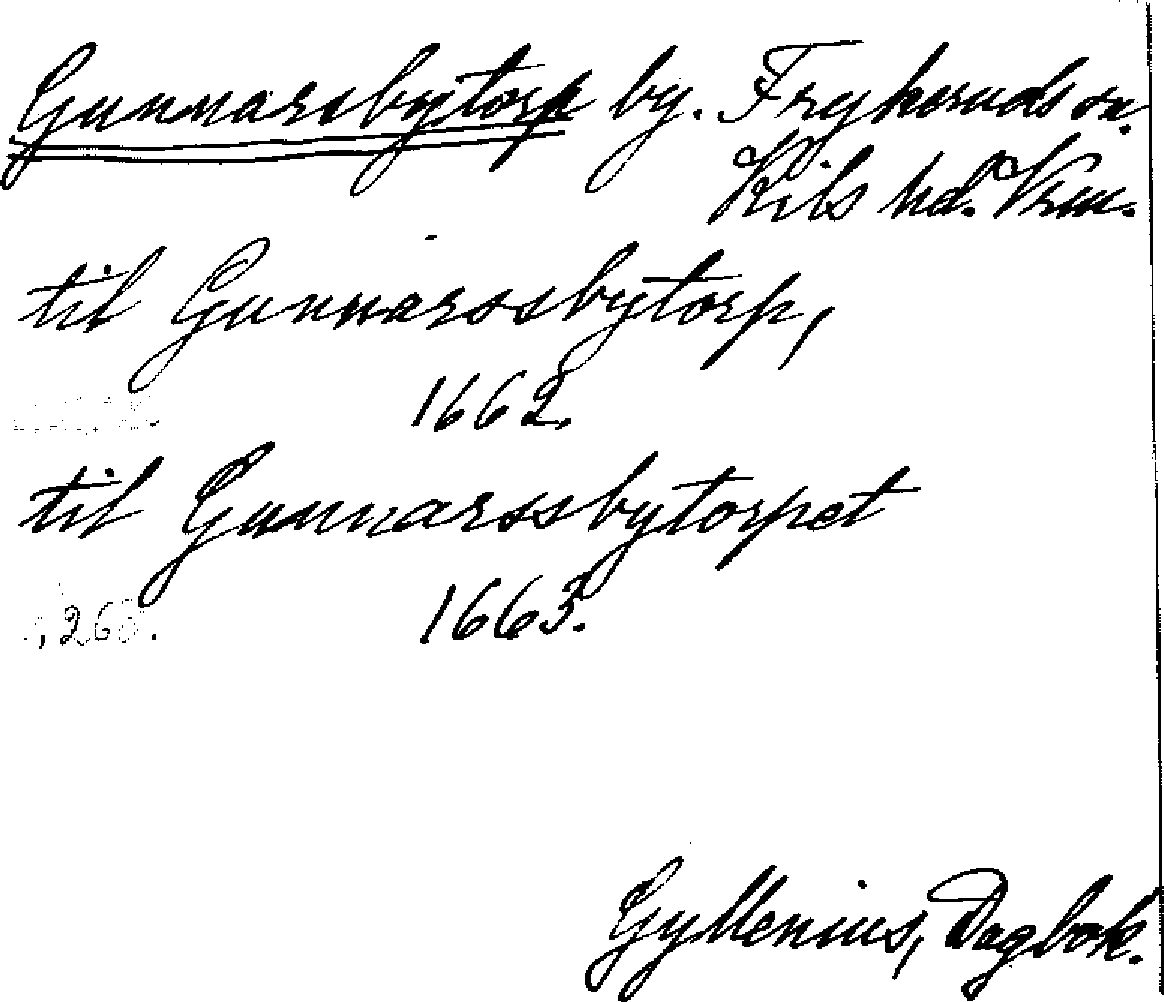 Gunnarsbytorp by. Frykeruds sn.
Kils hd. Vrm.
til Gunnarssbytorp,
1662.
til Gunnarssbytorpet
1663.
Gyllenius, Dagbok.